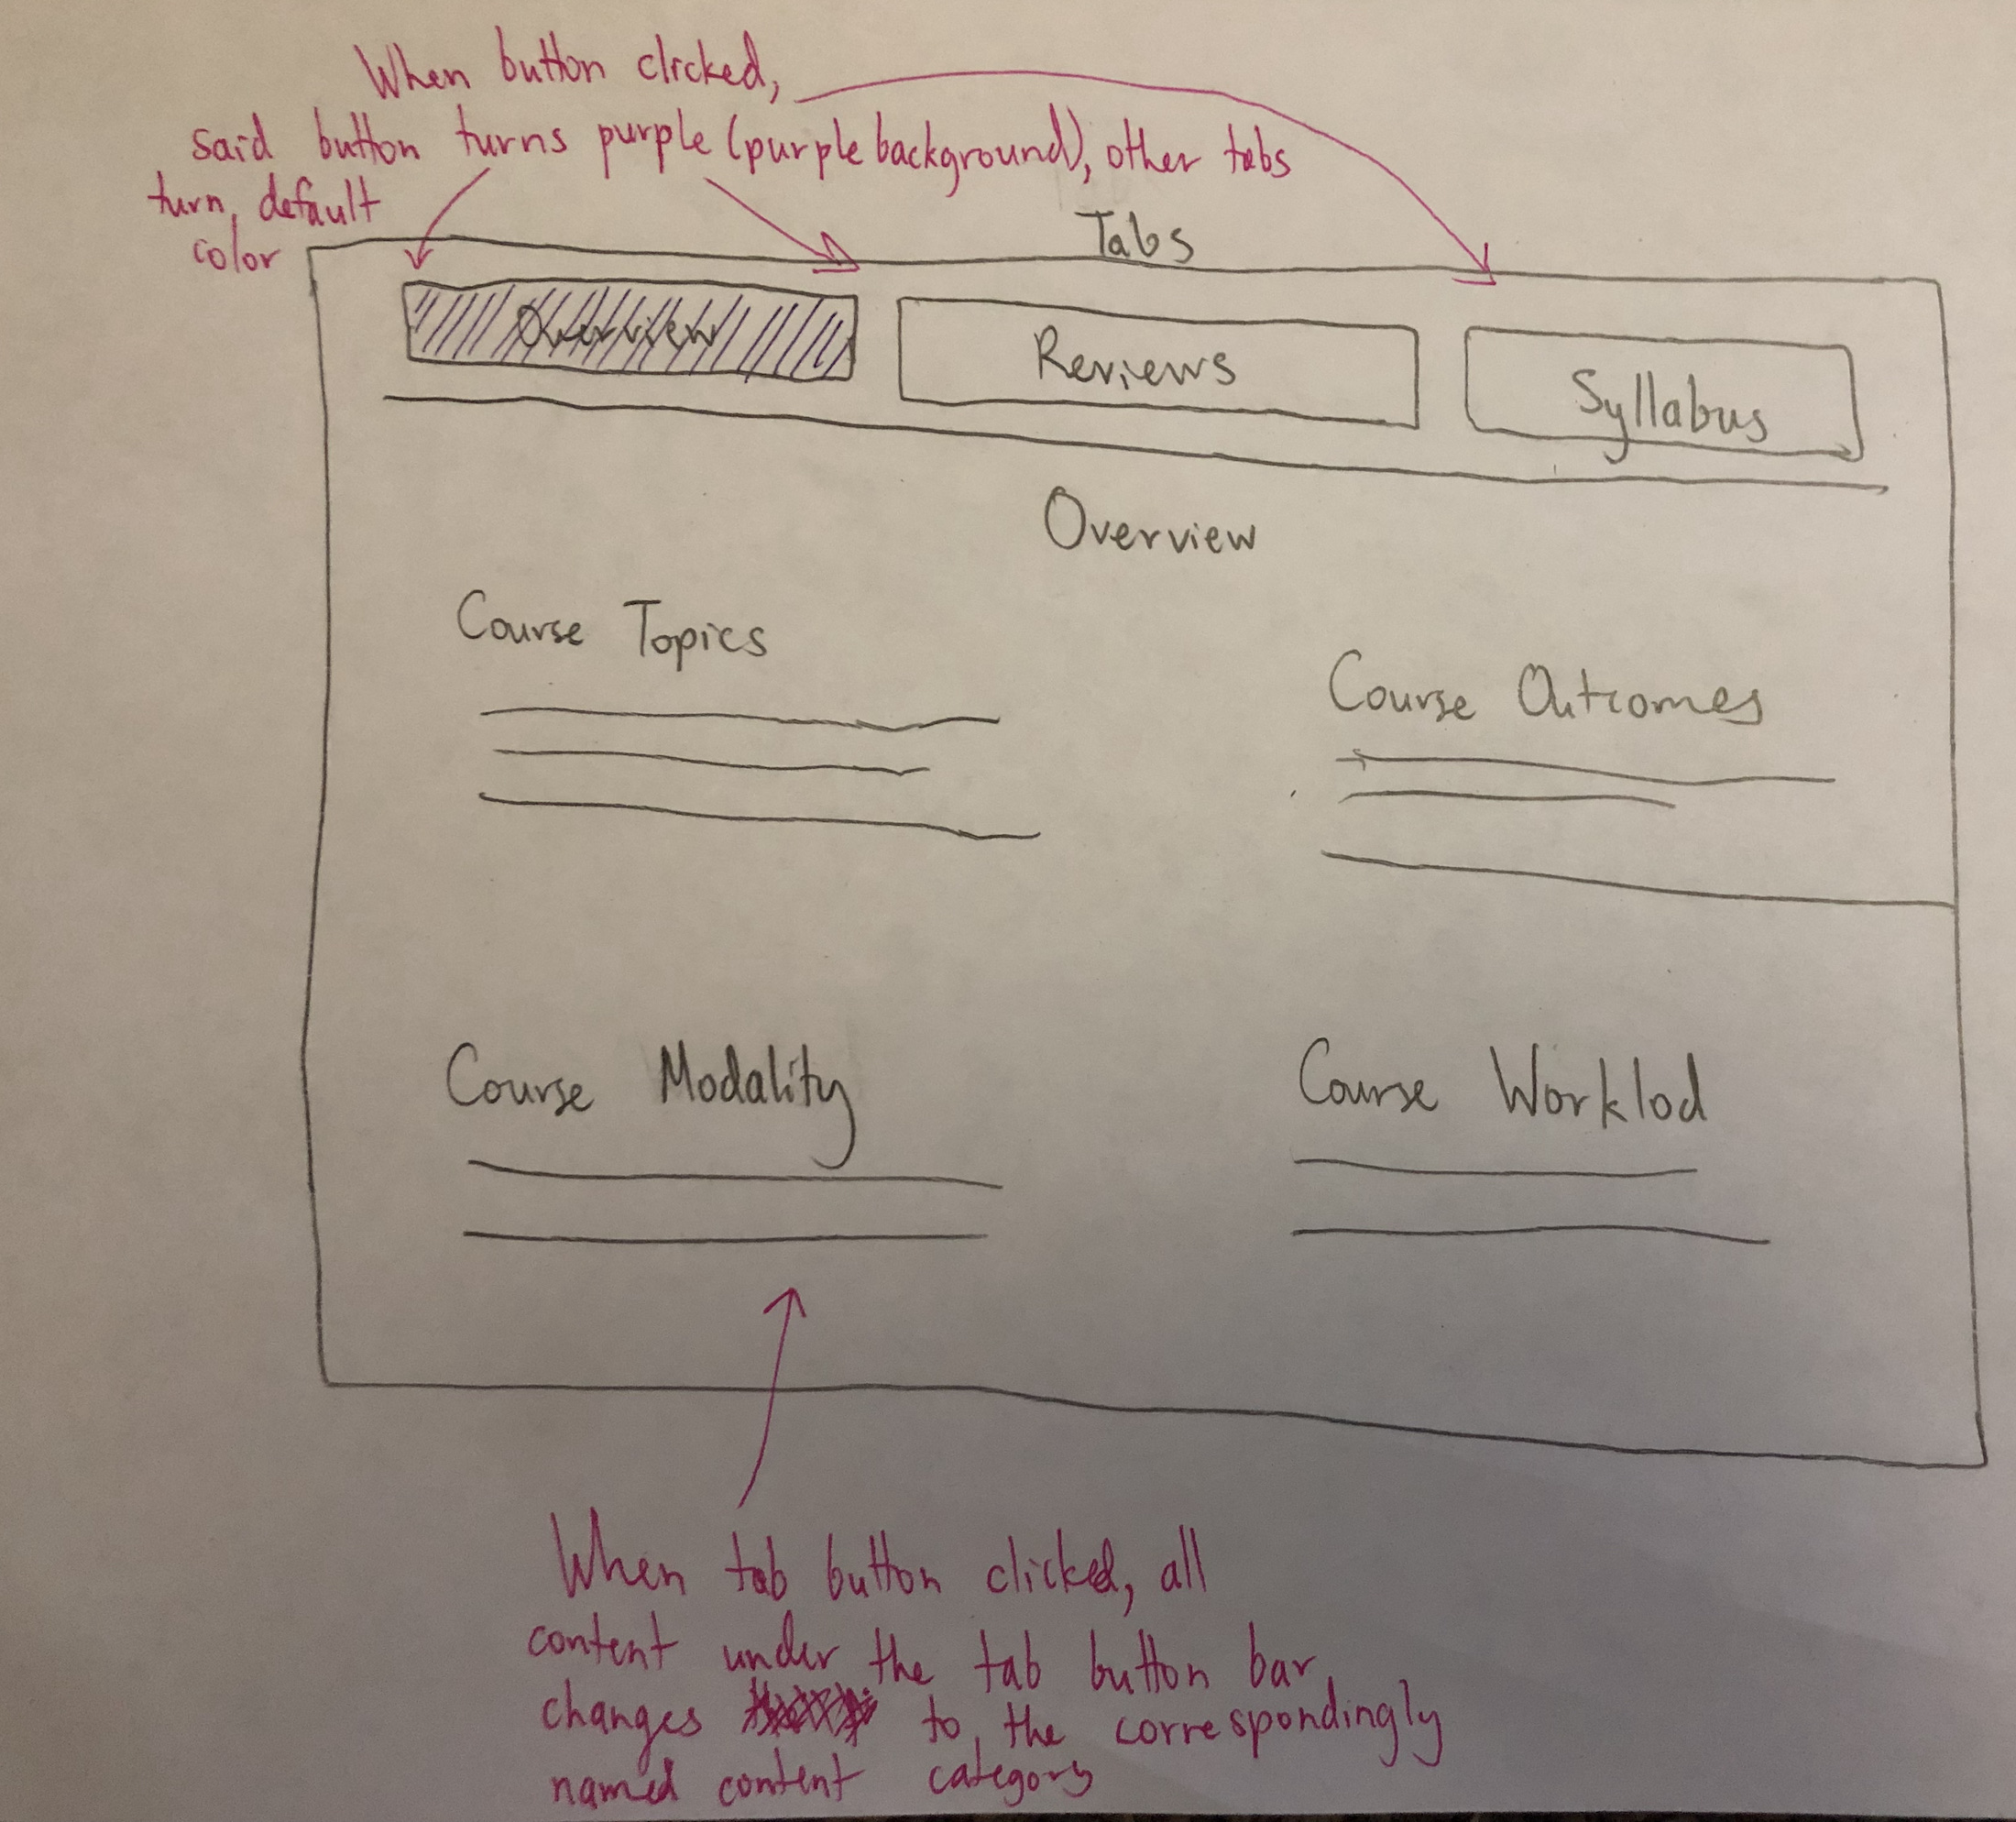 When button clicked,
said button turns purple (purple background), other tabs
turn default
color
Tabs
Overview
Reviews
Syllabus
Overview
Course Topics
Course Outcomes
Course Modality
Course Worklod
When tab button clicked, all
content under the tab button bar
changes to the correspondingly
named content category